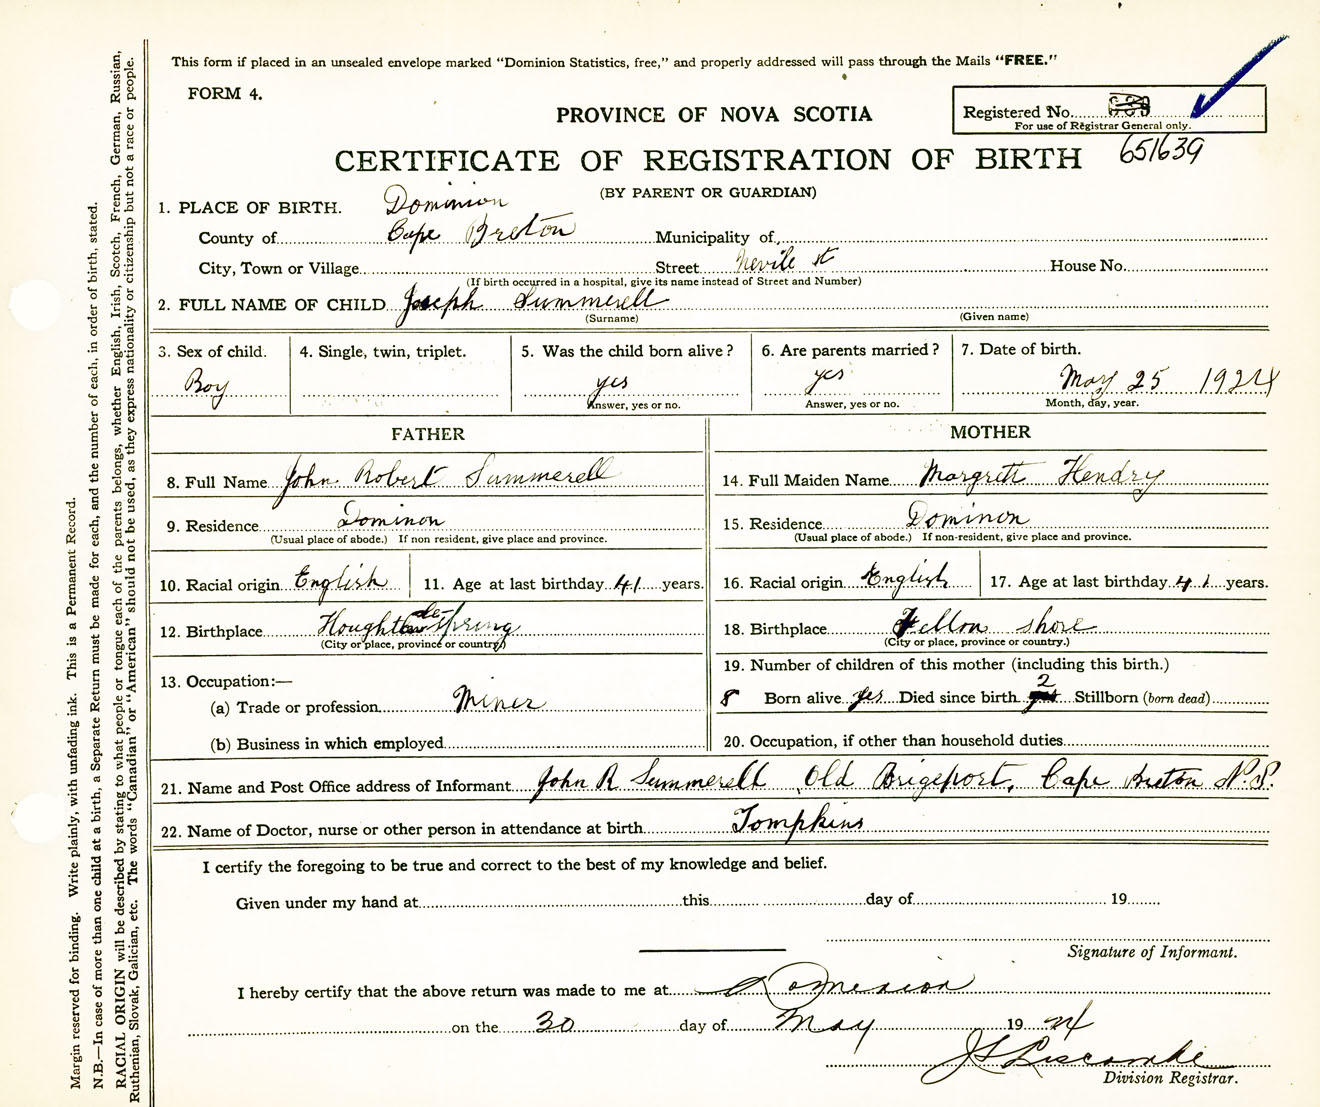 This form if placed in an unsealed envelope marked "Dominion Statistics, free," and properly addressed will pass through the Mails "FREE."
FORM 4.
PROVINCE OF NOVA SCOTIA
Registered No.
For use of Registrar General only.
651639
CERTIFICATE OF REGISTRATION OF BIRTH
(BY PARENT OR GUARDIAN)
1. PLACE OF BIRTH. Dominion
County of Cape Breton Municipality of
City, Town or Village Street Nevile st House No.
(If birth occurred in a hospital, give its name instead of Street and Number)
2. FULL NAME OF CHILD Joseph Summerell
(Surname) (Given name)
3. Sex of child. 4. Single, twin, triplet. 5. Was the child born alive? 6. Are parents married? 7. Date of birth.
Boy yes yes May 25 1924
Answer, yes or no. Answer, yes or no. Month, day, year.
FATHER MOTHER
8. Full Name John Robert Summerell 14. Full Maiden Name Margrett Hendry
9. Residence Dominon 15. Residence Dominon
(Usual place of abode.) If non resident, give place and province. (Usual place of abode.) If non-resident, give place and province.
10. Racial origin English 11. Age at last birthday 41 years. 16. Racial origin English 17. Age at last birthday 41 years.
12. Birthplace Hought le-spring 18. Birthplace Fellon shore
(City or place, province or country.) (City or place, province or country.)
13. Occupation:—
(a) Trade or profession Miner
(b) Business in which employed
19. Number of children of this mother (including this birth.)
8 Born alive yes Died since birth 2 Stillborn (born dead)
20. Occupation, if other than household duties
21. Name and Post Office address of Informant John R Summerell Old Brigeport, Cape Breton N.S.
22. Name of Doctor, nurse or other person in attendance at birth Tompkins
I certify the foregoing to be true and correct to the best of my knowledge and belief.
Given under my hand at this day of 19
Signature of Informant.
I hereby certify that the above return was made to me at Dominion
on the 30 day of May 19 24
J S Liscombe
Division Registrar.
Margin reserved for binding. Write plainly, with unfading ink. This is a Permanent Record.
N.B.—In case of more than one child at a birth, a Separate Return must be made for each, and the number of each, in order of birth, stated.
RACIAL ORIGIN will be described by stating to what people or tongue each of the parents belongs, whether English, Irish, Scotch, French, German, Russian,
Ruthenian, Slovak, Galician, etc. The words "Canadian" or "American" should not be used, as they express nationality or citizenship but not a race or people.